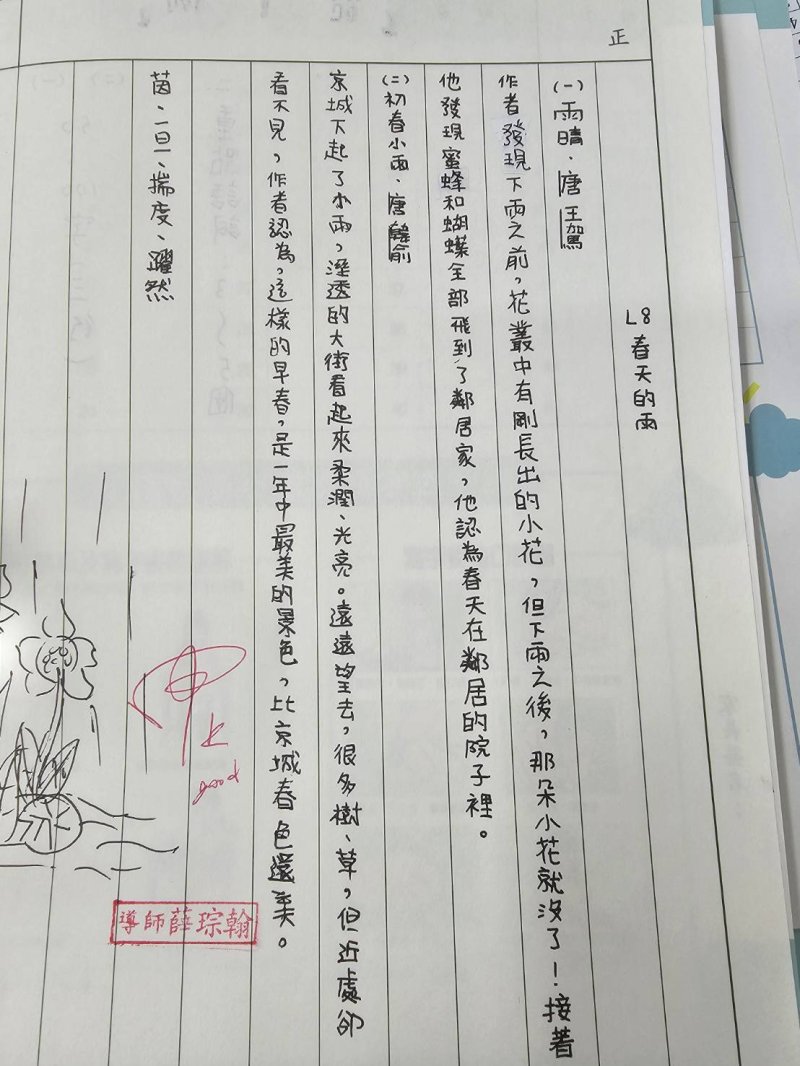 正
L8春天的雨
(一)雨晴.唐王駕
作者發現下雨之前,花叢中有剛長出的小花,但下雨之後,那朵小花就沒了!接著
他發現蜜蜂和蝴蝶全部飛到了鄰居家,他認為春天在鄰居的院子裡。
(二)初春小雨.唐韓俞
京城下起了小雨,溼透的大街看起來柔潤、光亮。遠遠望去,很多樹、草,但近處卻
看不見,作者認為,這樣的早春,是一年中最美的景色,比京城春色還美。
茵、一旦、揣度、躍然
甲上
good
導師薛琮翰